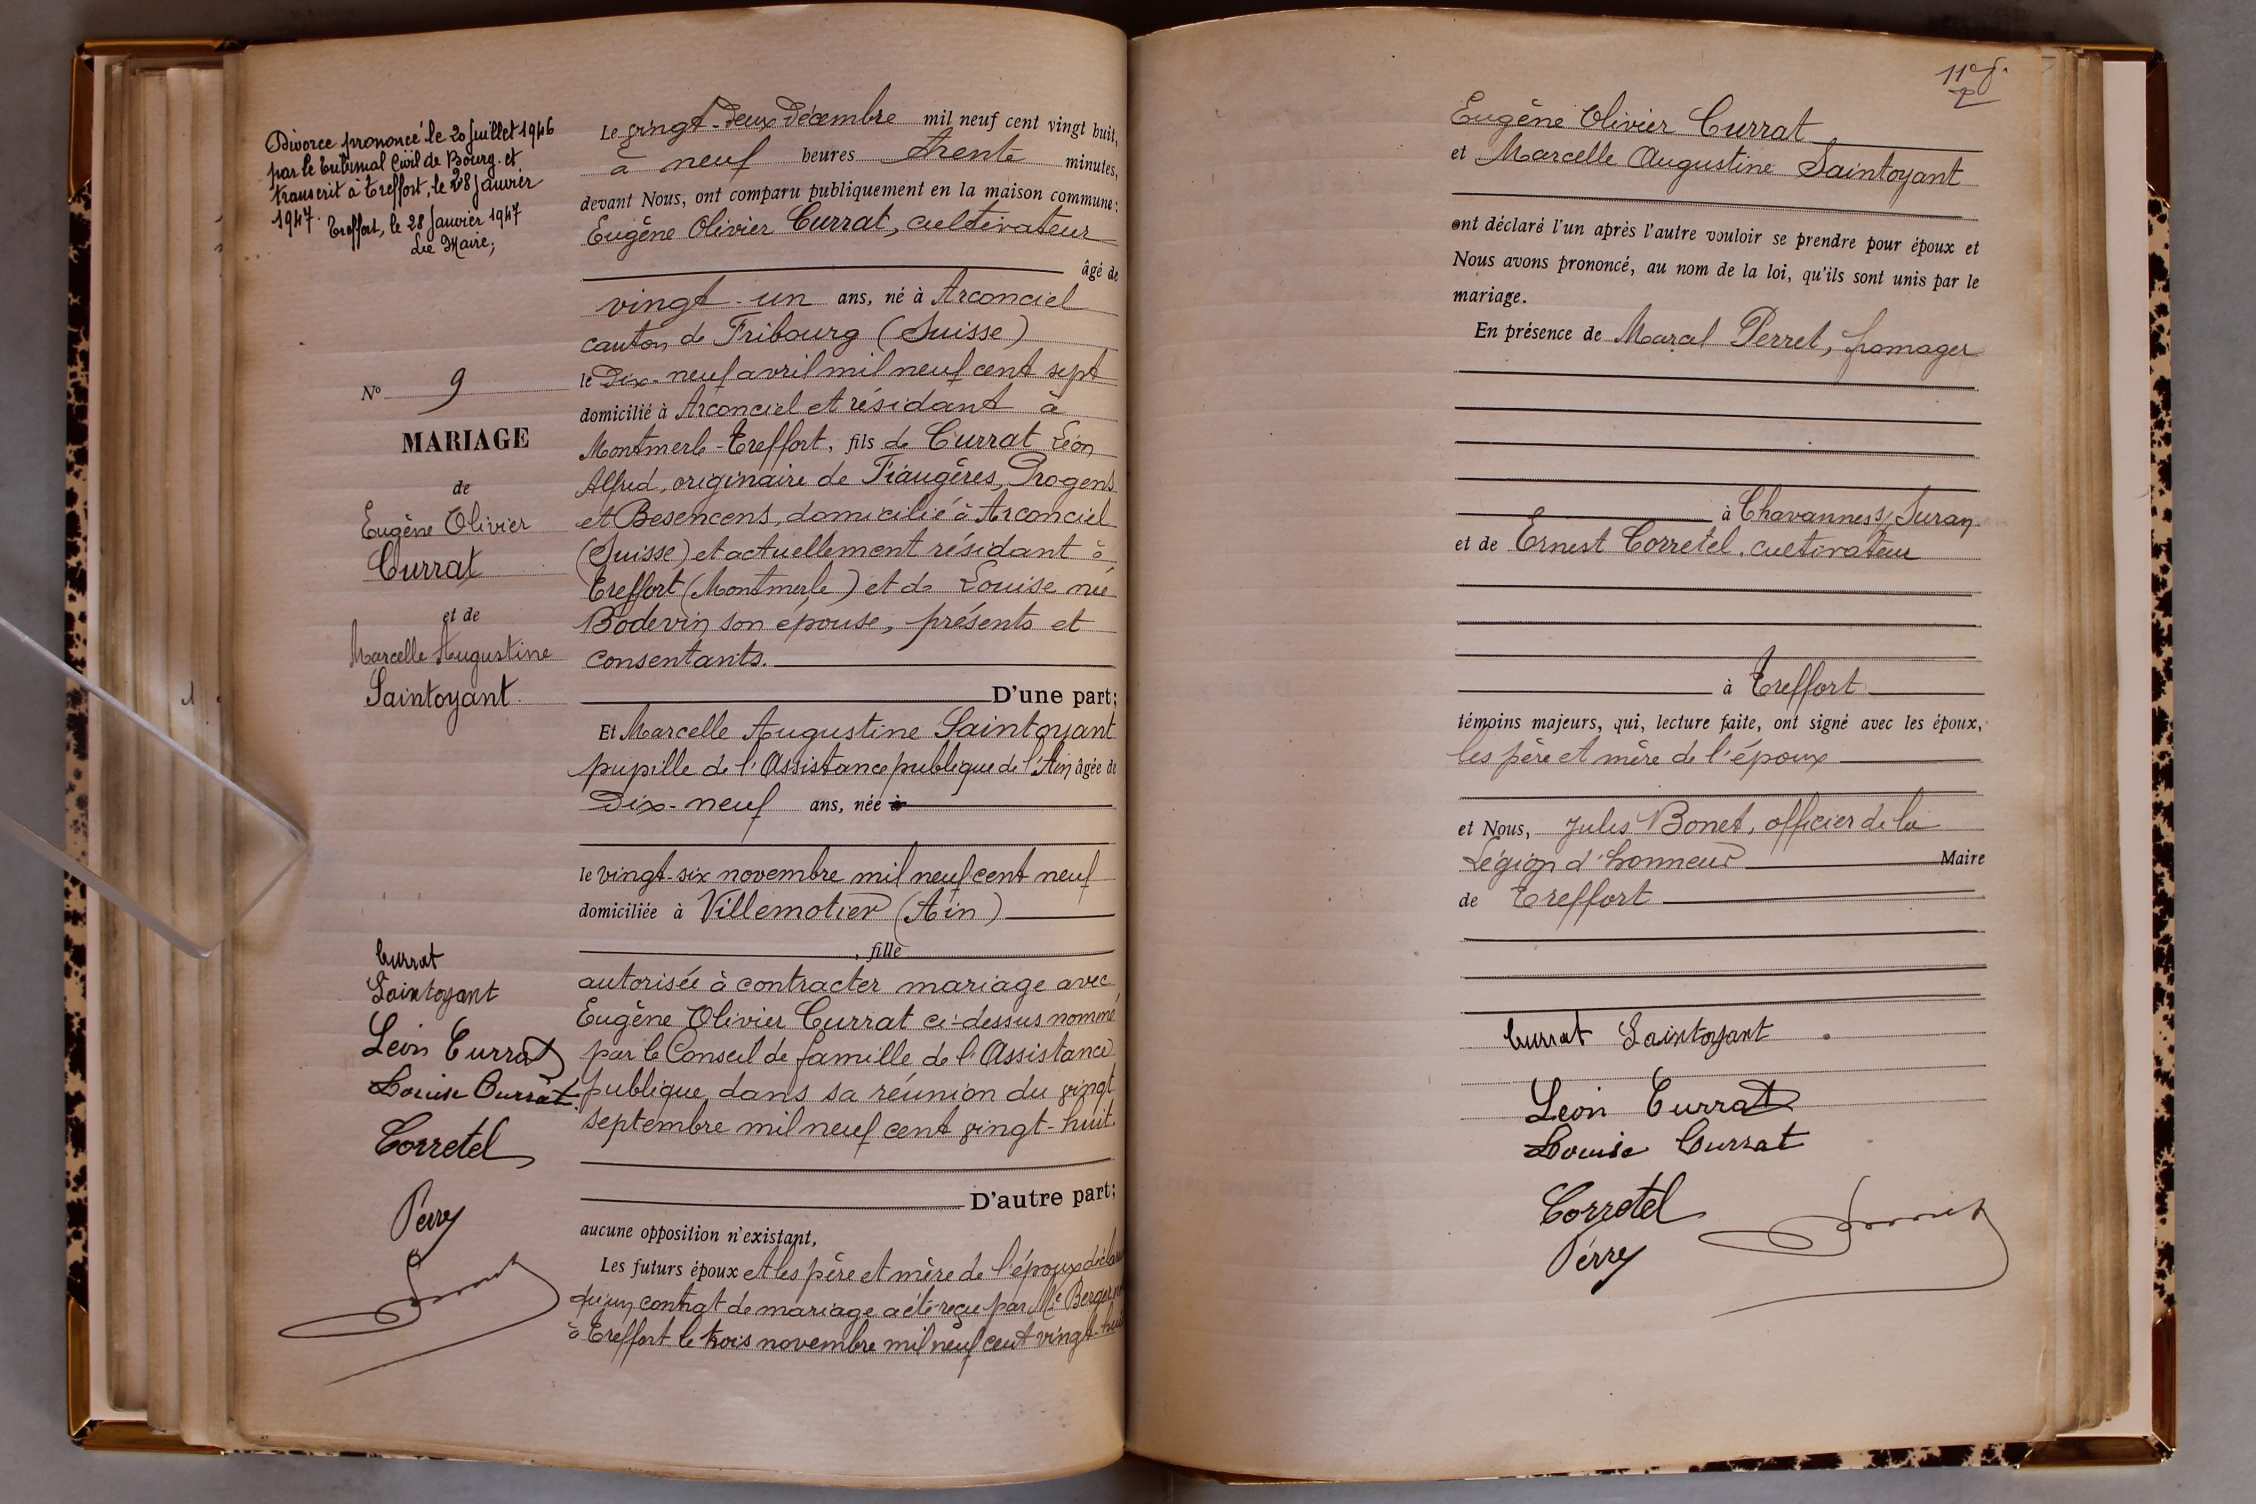 Divorce prononcé le 20 Juillet 1946
par le tribunal Civil de Bourg. et
transcrit à Treffort, le 28 Janvier
1947. Treffort, le 28 Janvier 1947
Le Maire,
Nº 9
MARIAGE
de
Eugène Olivier
Currat
et de
Marcelle Augustine
Saintoyant
Currat
Saintoyant
Léon Currat
Louise Currat
Corretel
Le vingt-deux Décembre mil neuf cent vingt huit,
à neuf heures trente minutes,
devant Nous, ont comparu publiquement en la maison commune:
Eugène Olivier Currat, cultivateur
âgé de
vingt-un ans, né à Arconciel
canton de Fribourg (Suisse)
le Dix-neuf avril mil neuf cent sept
domicilié à Arconciel et résidant à
Montmerle-Treffort, fils de Currat Léon
Alfred, originaire de Fiaugères, Progens
et Besencens, domicilié à Arconciel
(Suisse) et actuellement résidant à
Treffort (Montmerle) et de Louise née
Bodevin son épouse, présents et
consentants.
D'une part;
Et Marcelle Augustine Saintoyant
pupille de l'Assistance publique de l'Ain âgée de
Dix-neuf ans, née à
le vingt-six novembre mil neuf cent neuf
domiciliée à Villemotier (Ain)
, fille
autorisée à contracter mariage avec
Eugène Olivier Currat ci-dessus nommé
par le Conseil de famille de l'Assistance
publique dans sa réunion du vingt
septembre mil neuf cent vingt-huit.
D'autre part;
aucune opposition n'existant,
Les futurs époux et les père et mère de l'époux
qu'un contrat de mariage a été reçu par Me Berger
à Treffort le trois novembre mil neuf cent vingt-huit
Eugène Olivier Currat
et Marcelle Augustine Saintoyant
ont déclaré l'un après l'autre vouloir se prendre pour époux et
Nous avons prononcé, au nom de la loi, qu'ils sont unis par le
mariage.
En présence de Marcel Perret, fromager
à Chavannes s/ Suran
et de Ernest Corretel, cultivateur
à Treffort
témoins majeurs, qui, lecture faite, ont signé avec les époux,
les père et mère de l'époux
et Nous, Jules Bonet, officier de la
Légion d'honneur Maire
de Treffort
Currat Saintoyant
Léon Currat
Louise Currat
Corretel